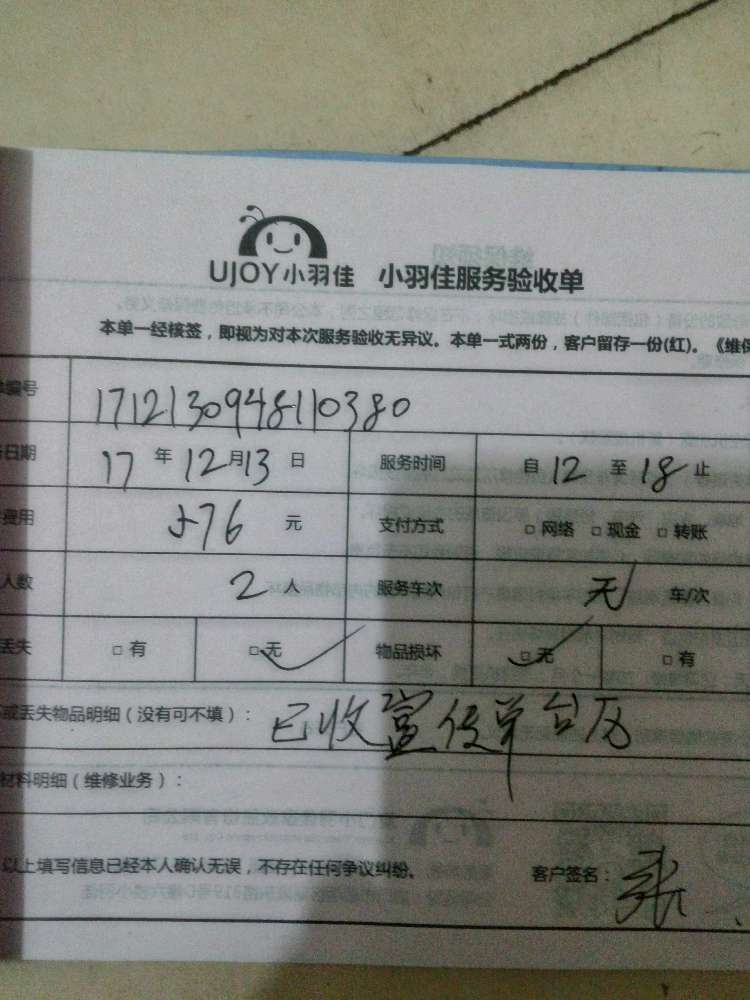 UJOY小羽佳 小羽佳服务验收单
本单一经核签，即视为对本次服务验收无异议。本单一式两份，客户留存一份(红)。《维保
单编号 1712130948110380
务日期 17 年 12 月 13 日 服务时间 自 12 至 18 止
费用 576 元 支付方式 □ 网络 □ 现金 □ 转账
人数 2 人 服务车次 无 车/次
丢失 □ 有 □ 无 物品损坏 □ 无 □ 有
或丢失物品明细（没有可不填）： 已收宣传单台历
材料明细（维修业务）：
以上填写信息已经本人确认无误，不存在任何争议纠纷。 客户签名： 张